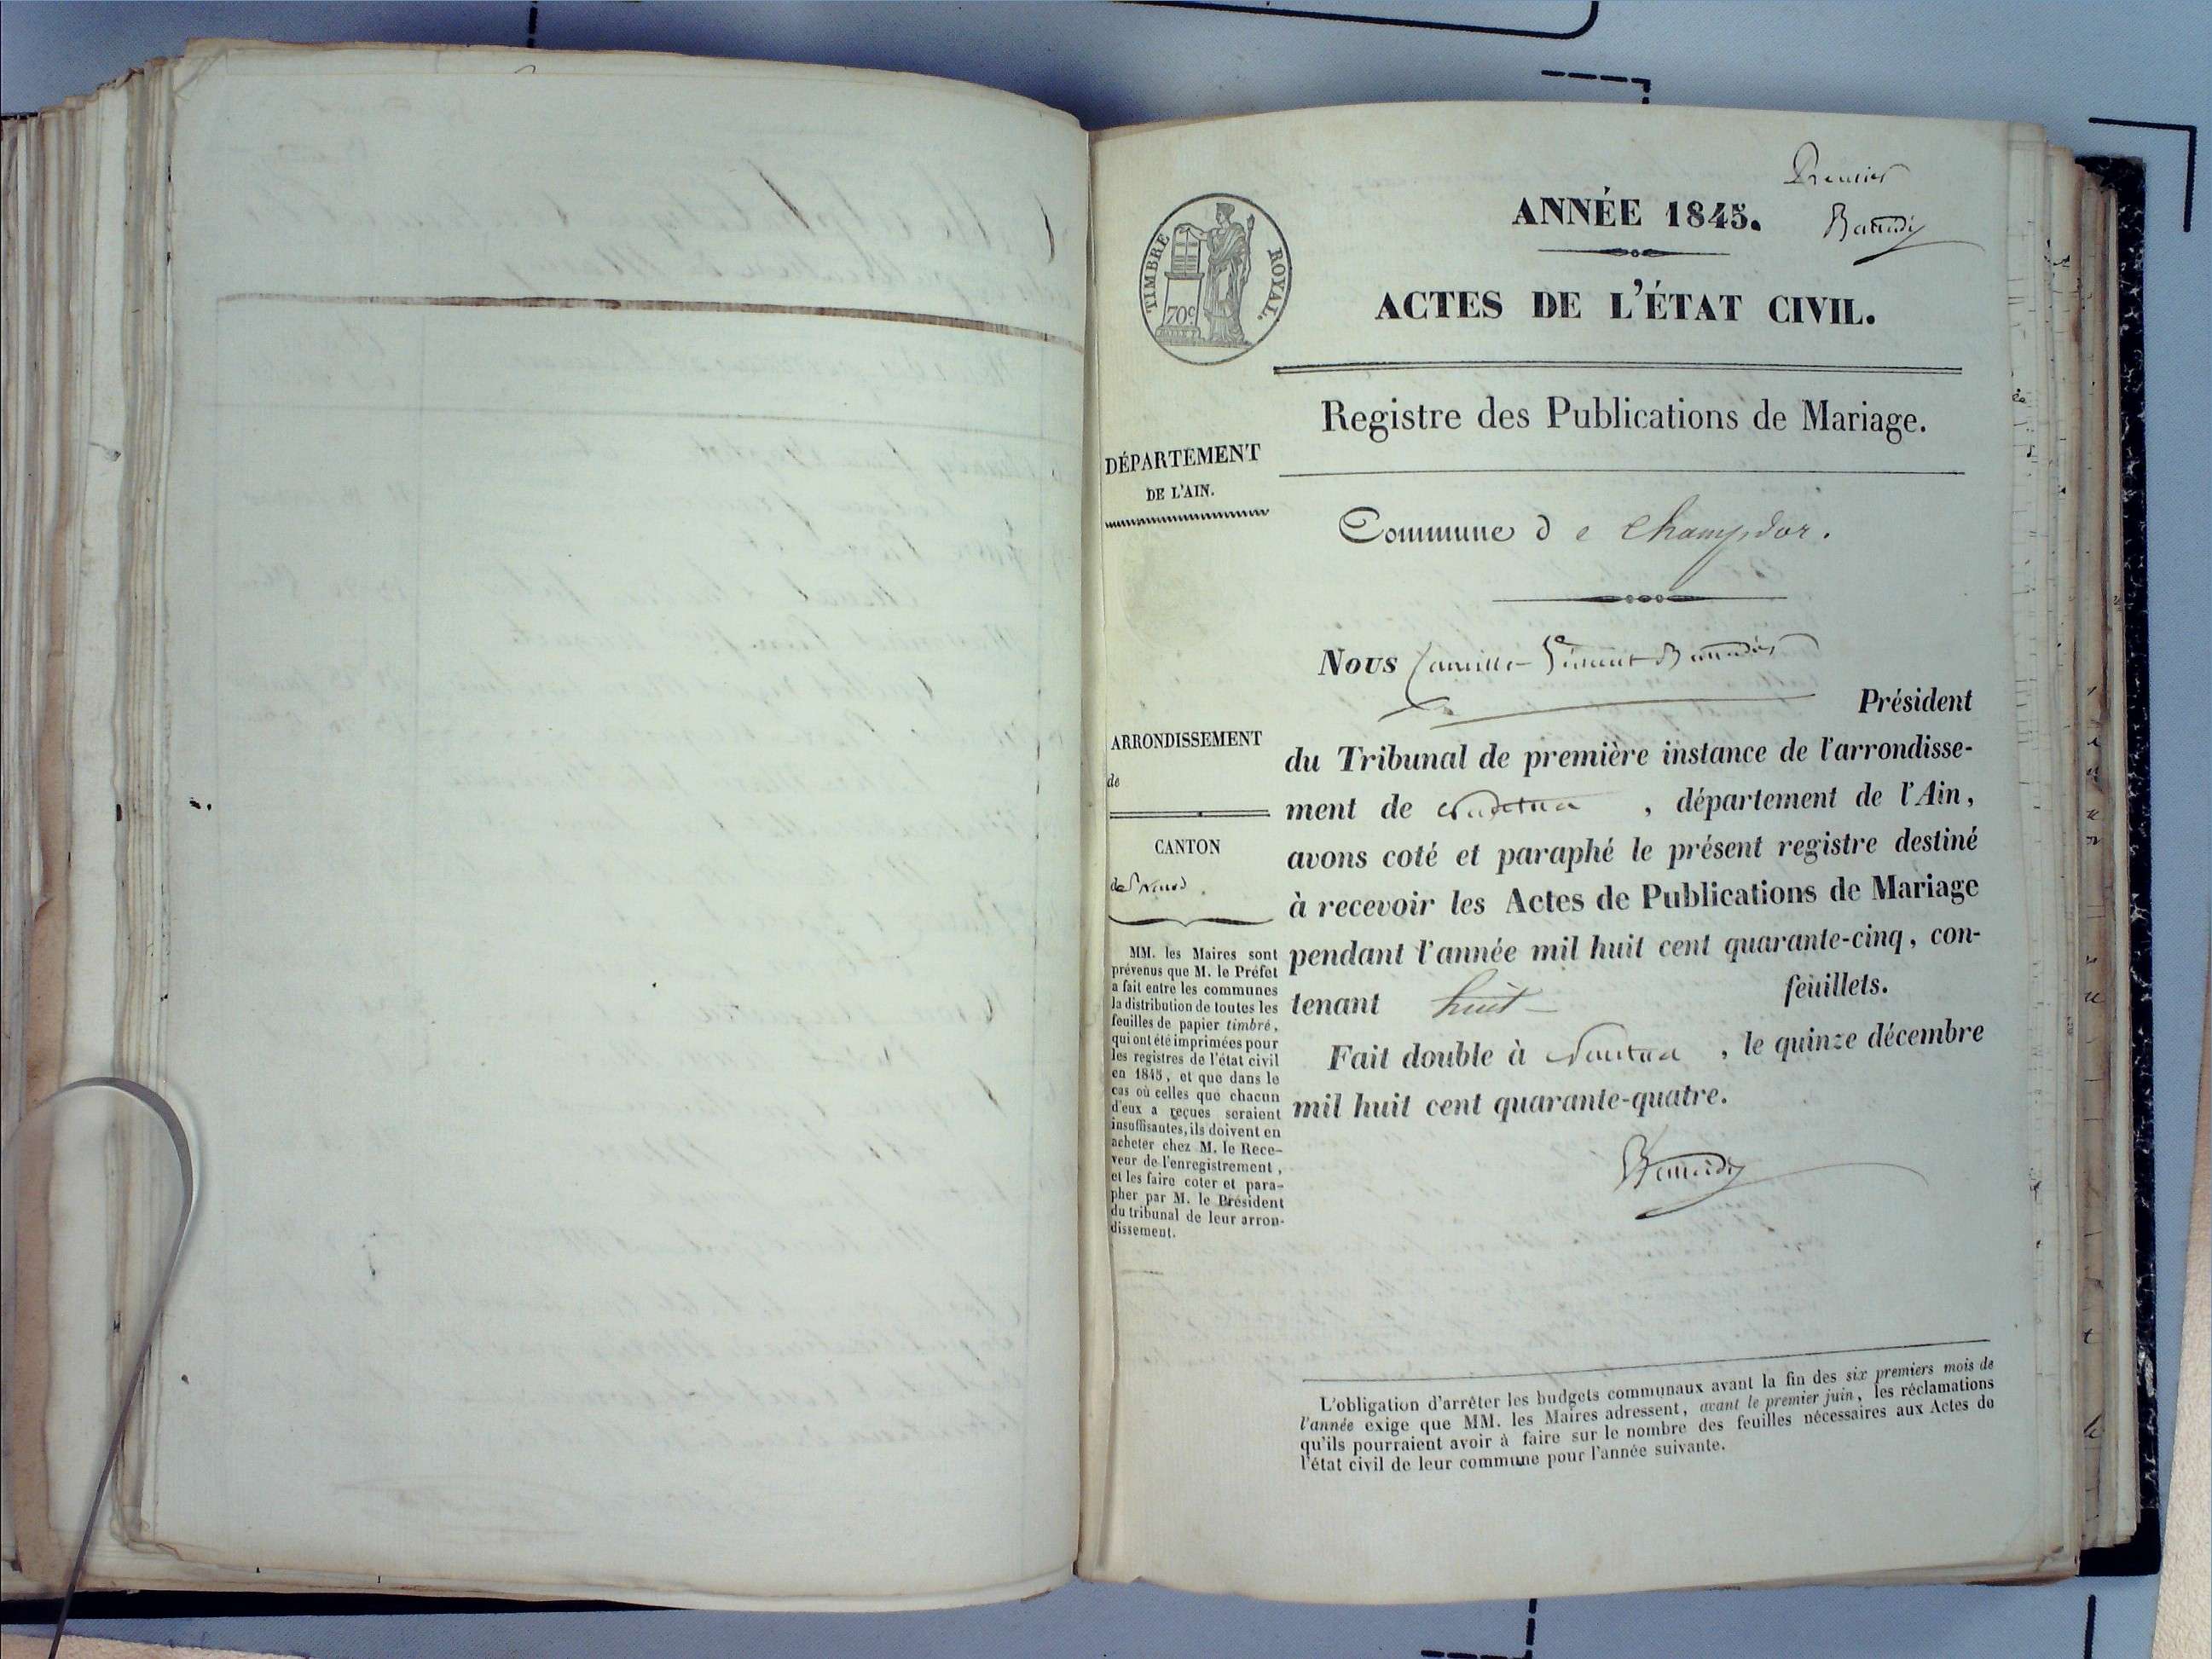 Premier
ANNÉE 1845.
TIMBRE ROYAL.
70c
ACTES DE L'ÉTAT CIVIL.
Registre des Publications de Mariage.
DÉPARTEMENT
DE L'AIN.
Commune de Champdor.
Nous Camille
Président
ARRONDISSEMENT
de
CANTON
de
du Tribunal de première instance de l'arrondisse-
ment de Nantua, département de l'Ain,
avons coté et paraphé le présent registre destiné
à recevoir les Actes de Publications de Mariage
pendant l'année mil huit cent quarante-cinq, con-
tenant huit feuillets.
Fait double à Nantua, le quinze décembre
mil huit cent quarante-quatre.
MM. les Maires sont
prévenus que M. le Préfet
a fait entre les communes
la distribution de toutes les
feuilles de papier timbré,
qui ont été imprimées pour
les registres de l'état civil
en 1845, et que dans le
cas où celles que chacun
d'eux a reçues seraient
insuffisantes, ils doivent en
acheter chez M. le Rece-
veur de l'enregistrement,
et les faire coter et para-
pher par M. le Président
du tribunal de leur arron-
dissement.
L'obligation d'arrêter les budgets communaux avant la fin des six premiers mois de
l'année exige que MM. les Maires adressent, avant le premier juin, les réclamations
qu'ils pourraient avoir à faire sur le nombre des feuilles nécessaires aux Actes de
l'état civil de leur commune pour l'année suivante.